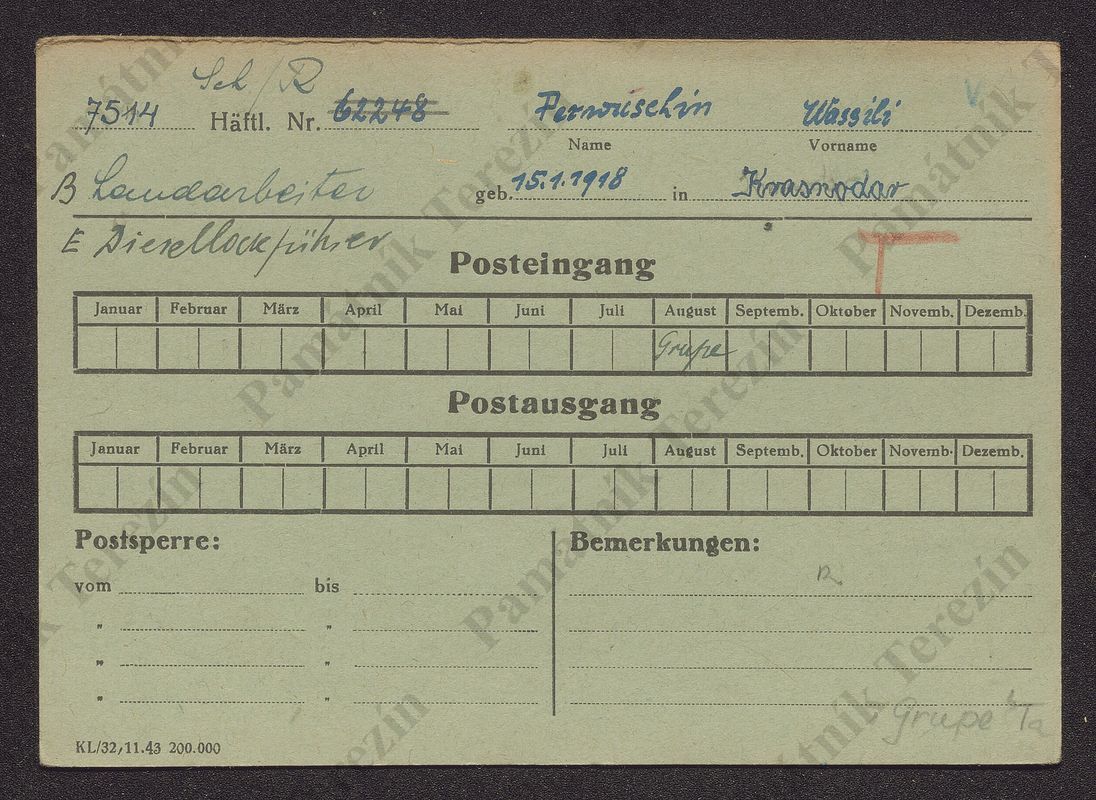 Sch/R
7514 Häftl. Nr. 62248 Perwuschin Wassili
Name Vorname
B Landarbeiter geb. 15.1.1918 in Krasnodar
E Diesellockführer
T
Posteingang
Januar Februar März April Mai Juni Juli August Septemb. Oktober Novemb. Dezemb.
Grupe
Postausgang
Januar Februar März April Mai Juni Juli August Septemb. Oktober Novemb. Dezemb.
Postsperre: Bemerkungen:
vom bis
" "
" "
" "
Grupe
KL/32, 11.43 200.000
Památník Terezín